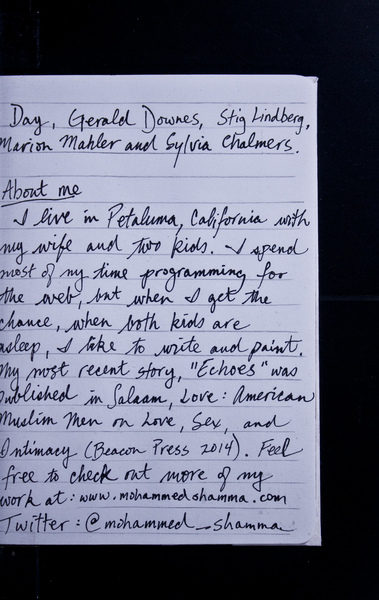 Day, Gerald Downes, Stig Lindberg,
Marion Mahler and Sylvia Chalmers.
About me
I live in Petaluma, California with
my wife and two kids. I spend
most of my time programming for
the web, but when I get the
chance, when both kids are
asleep, I like to write and paint.
My most recent story, "Echoes" was
published in Salaam, Love: American
Muslim Men on Love, Sex, and
Intimacy (Beacon Press 2014). Feel
free to check out more of my
work at: www.mohammedshamma.com
Twitter: @mohammed_shamma